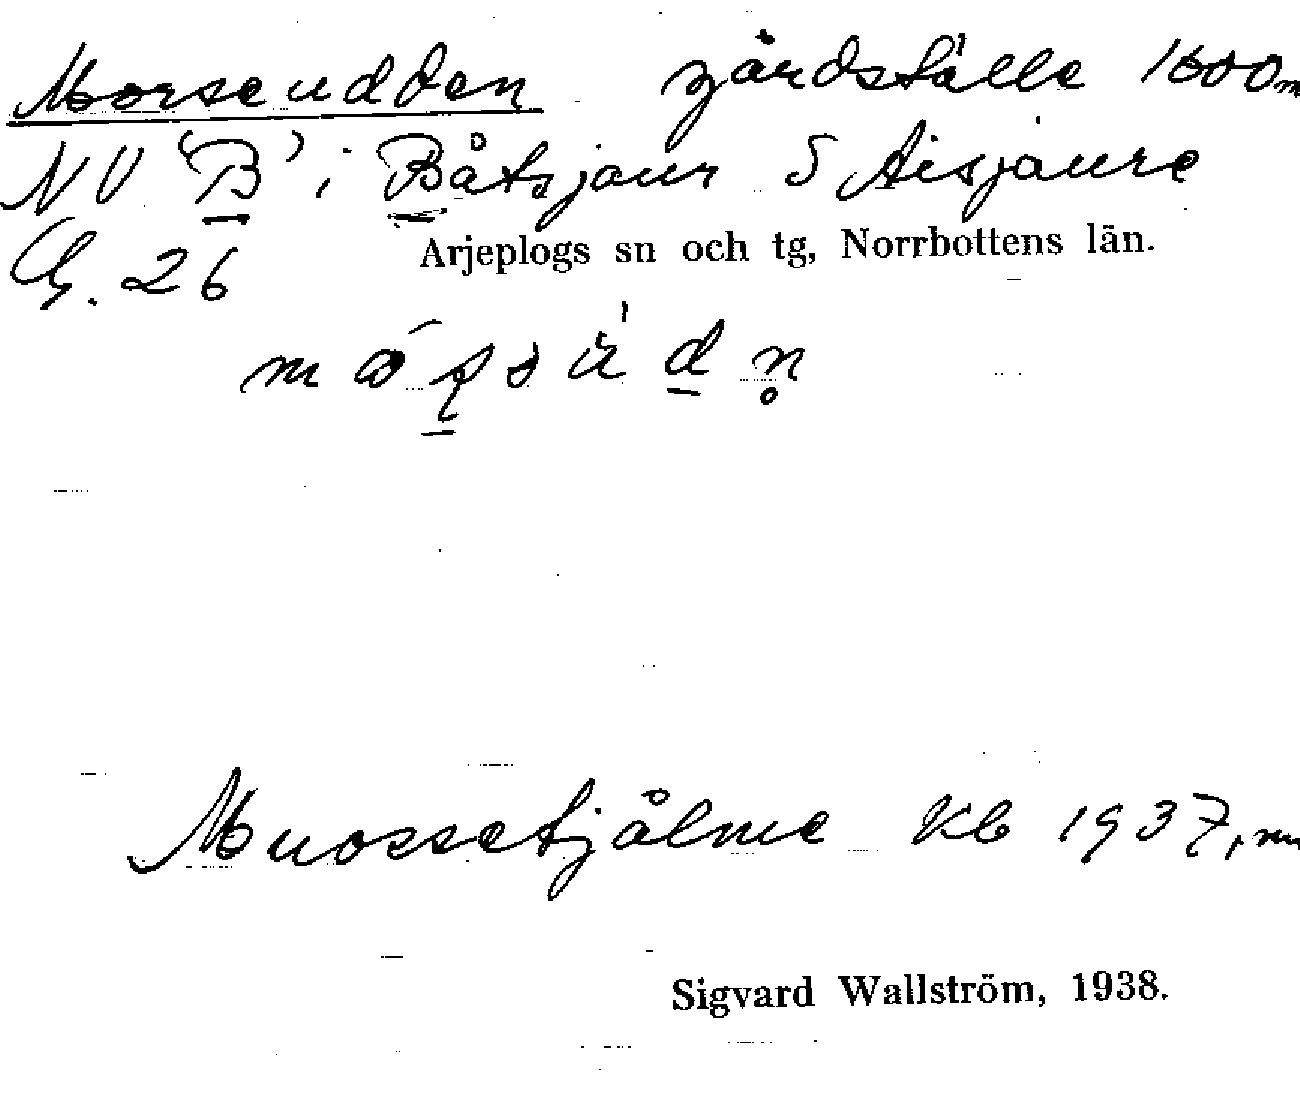 Morseudden gårdställe 1600 m
NV 'B' i Båtsjaur S Aisjaure
G. 26 Arjeplogs sn och tg, Norrbottens län.
Muossetjålme Kb 1937,
Sigvard Wallström, 1938.